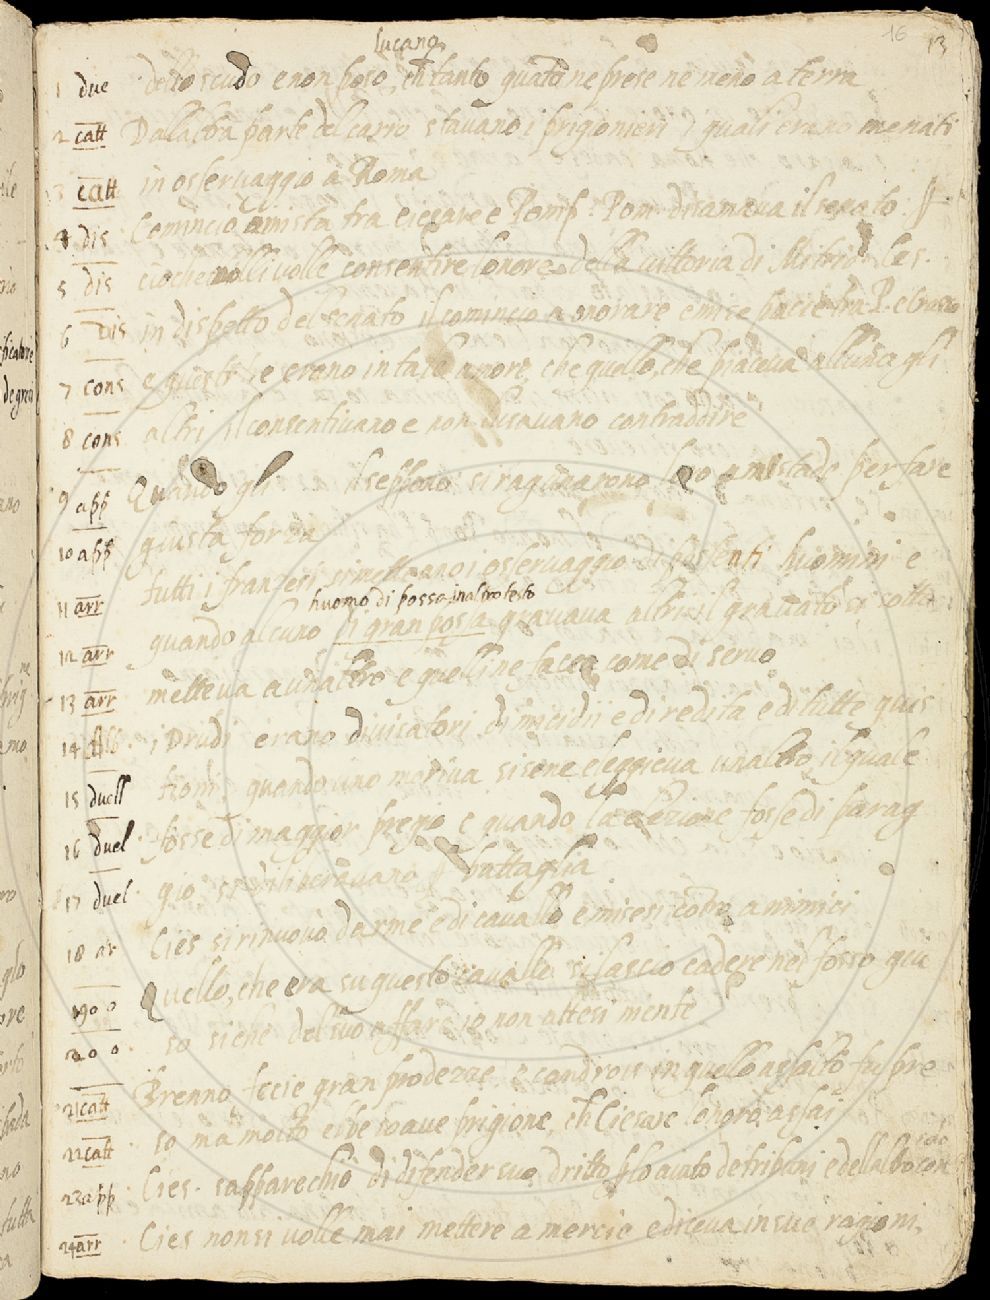 Lucano
16 13
1 due dello scudo e non poso, ch tanto quãto ne prese ne meno a terra
2 catt Dalaltra parte del carro stavano i prigionieri i quali erano menati
3 catt in osservaggio à Roma
4 dis Cominciò amista tra ciesare e Pomp: Pom. disamava il senato
5 dis cioche nolli volle consentire lonore della vittoria di Mitrid
6 dis in dispetto del senato il comincio a onorare e mise pacie tra P. e
7 cons e questi erano in tale amore, che quello, che piaceva alluna gli
8 cons altri il consentivano e non usavano contradire
9 app Quando gli il seppono si ragunarono loro amistade per fare
10 app giusta forza
11 arr tutti i franzesi si metteano i osservaggio di possenti huomini e
huomo di possa in altro testo
12 arr quando alcuno di gran possa gravava altrui il gravato si sotto
13 arr metteva a unaltro e quelli ne facea come di servo
14 i Drudi erano divisatori di micidii e di redità e di tutte quis
15 duell tioni quando uno moriva si sene eleggieva unaltro il quale
16 duel fosse di maggior pregio e quando la elezione fosse di parag
17 duel gio, si diliberavano battaglia
18 ar Cies si rinvovò darme e di cavallo e misesi cõtro a nimici
19 o o Quello, che era su questo cavallo si lascio cadere nel fosso giu
20 o o so siche del suo affare io non attesi niente
21 catt Brenno fecie gran prodezze in quello assalto fu pre
22 catt so ma molto ebbe soave prigione, ch Ciesare lonorò assai
23 app Cies. sapparechiò di difender suo dritto p lo aiuto de tribuni e dellaltro con
24 arr Cies non si volle mai mettere a mercie e diceva in sue ragioni,